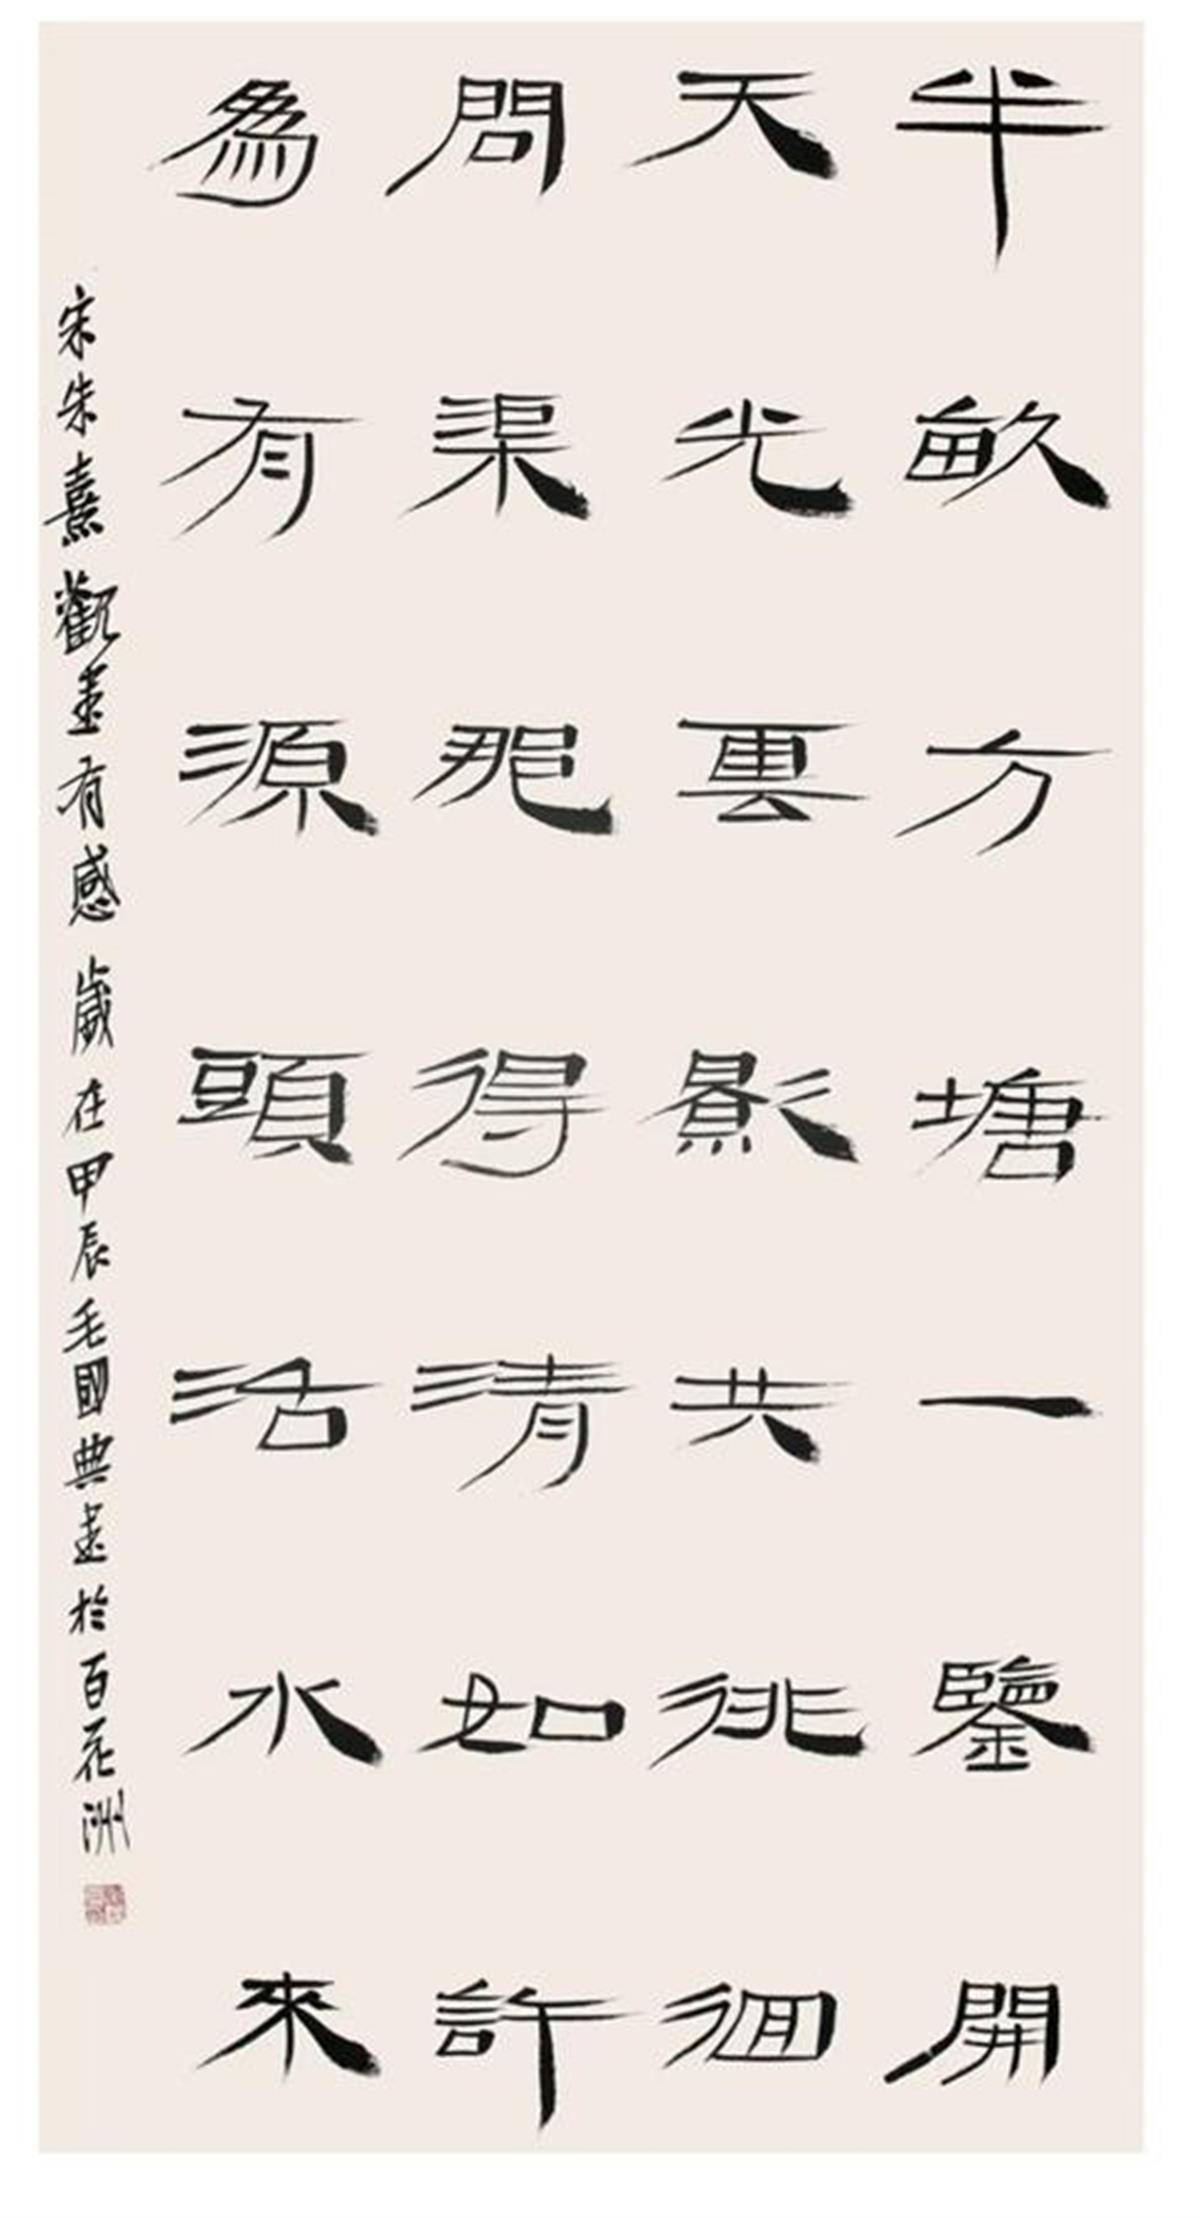 半畝方塘一鑒開
天光雲影共徘徊
問渠那得清如許
爲有源頭活水來
宋朱熹觀書有感 歲在甲辰毛國典書於百花洲